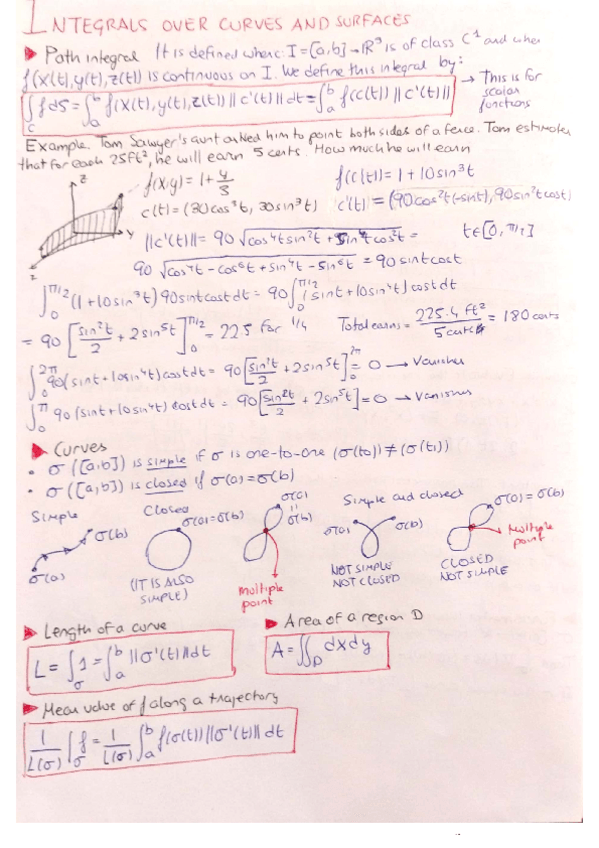 INTEGRALS OVER CURVES AND SURFACES
▶ Path integral It is defined when: I=[a,b]→ℝ³ is of class C¹ and when
f(x(t),y(t),z(t)) is continuous on I. We define this integral by:
∫_c f dS = ∫_a^b f(x(t),y(t),z(t)) ||c'(t)|| dt = ∫_a^b f(c(t)) ||c'(t)|| → This is for scalar functions
Example. Tom Sawyer's aunt asked him to paint both sides of a fence. Tom estimates
that for each 25ft², he will earn 5 cents. How much he will earn
z
y
x
f(x,y) = 1+ y/3
f(c(t)) = 1+10sin³t
c(t) = (30cos³t, 30sin³t)
c'(t) = (90cos²t(-sint), 90sin²tcost)
||c'(t)|| = 90√(cos⁴tsin²t + sin⁴tcos²t) =
t∈[0, π/2]
90√(cos⁴t - cos⁶t + sin⁴t - sin⁶t) = 90sintcost
∫_0^{π/2} (1+10sin³t) 90sintcostdt = 90∫_0^{π/2} (sint+10sin⁴t) cost dt
= 90 [sin²t/2 + 2sin⁵t]_0^{π/2} = 225 for 1/4
Total earns = 225·4 ft²/5 cents = 180 cents
∫_0^{2π} 90(sint+10sin⁴t)costdt = 90[sin²t/2 + 2sin⁵t]_0^{2π} = 0 → Vanishes
∫_0^π 90(sint+10sin⁴t)costdt = 90[sin²t/2 + 2sin⁵t] = 0 → Vanishes
▶ Curves
• σ([a,b]) is simple if σ is one-to-one (σ(t₀)) ≠ (σ(t₁))
• σ([a,b]) is closed if σ(a)=σ(b)
Simple
σ(a)
σ(b)
Closed
σ(a)=σ(b)
(IT IS ALSO
SIMPLE)
σ(a)
=
σ(b)
Multiple
point
Simple and closed
σ(a)
σ(b)
NOT SIMPLE
NOT CLOSED
σ(a)=σ(b)
Multiple
point
CLOSED
NOT SIMPLE
▶ Length of a curve
L = ∫_σ 1 = ∫_a^b ||σ'(t)||dt
▶ Area of a region D
A = ∬_D dxdy
▶ Mean value of f along a trajectory
1/L(σ) ∫_σ f = 1/L(σ) ∫_a^b f(σ(t)) ||σ'(t)|| dt